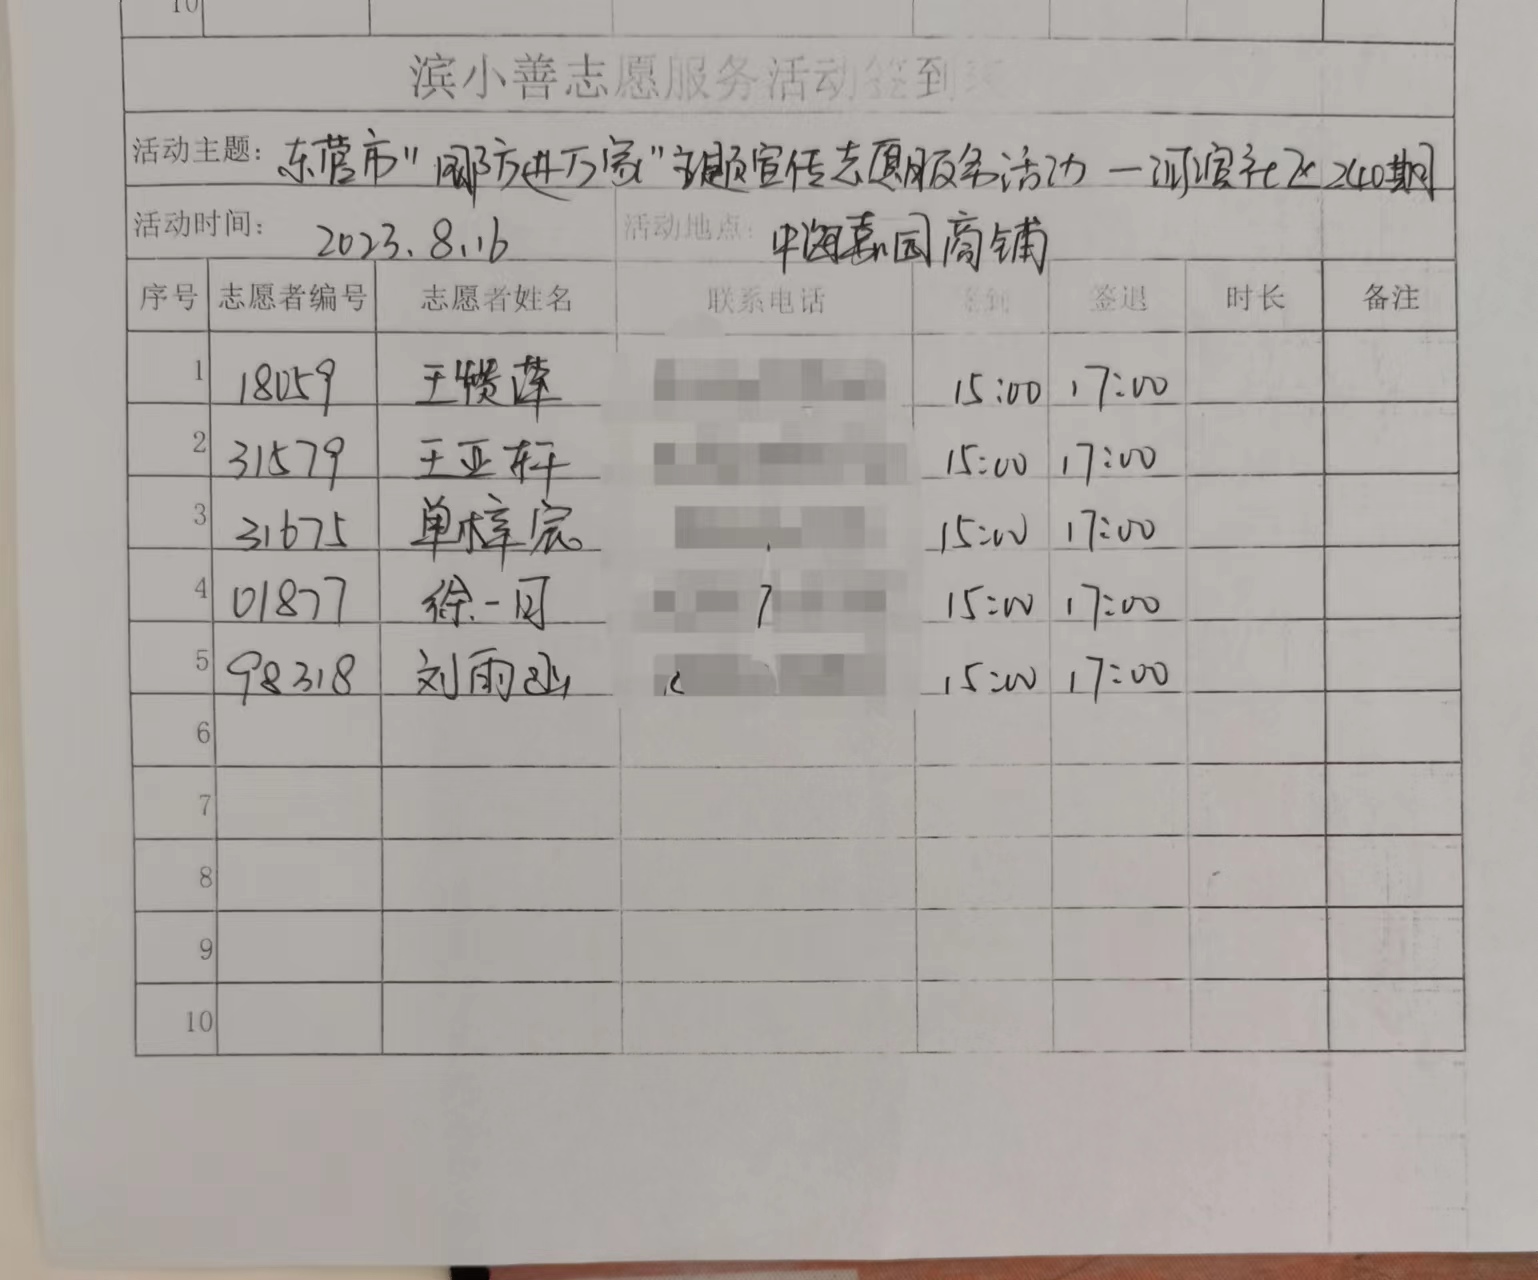 10
滨小善志愿服务活动签到表
活动主题: 东营市"国防进万家"主题宣传志愿服务活动—河滨社区240期
活动时间: 2023.8.16 活动地点: 中海嘉园商铺
序号 志愿者编号 志愿者姓名 联系电话 签到 签退 时长 备注
1 18059 王赞萍 15:00 17:00
2 31579 王亚轩 15:00 17:00
3 31675 单梓宸 15:00 17:00
4 01877 徐一同 15:00 17:00
5 98318 刘雨函 15:00 17:00
6
7
8
9
10